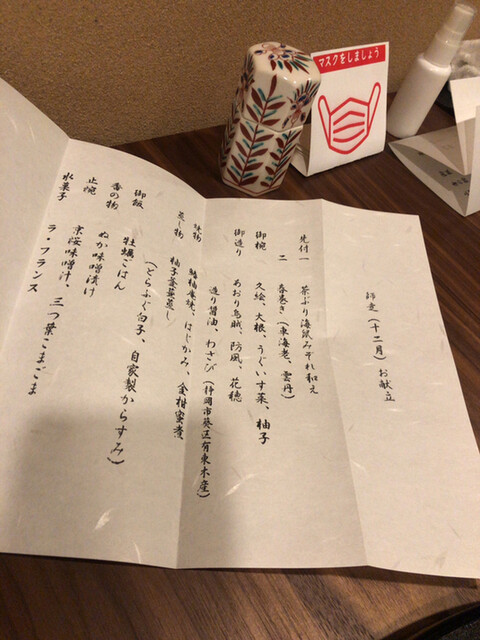 マスクをしましょう
師走(十二月)お献立
先付一 茶ぶり海鼠みぞれ和え
二 春巻き(車海老、雲丹)
御椀 久絵、大根、うぐいす菜、柚子
御造り あおり烏賊、防風、花穂
造り醤油、わさび(静岡市葵区有東木産)
焼物 鰆柚庵焼、はじかみ、金柑蜜煮
蒸し物 柚子釜蒸し
(とらふぐ白子、自家製からすみ)
御飯 牡蠣ごはん
香の物 ぬか味噌漬け
止椀 京桜味噌汁、三つ葉ごまごま
水菓子 ラ・フランス